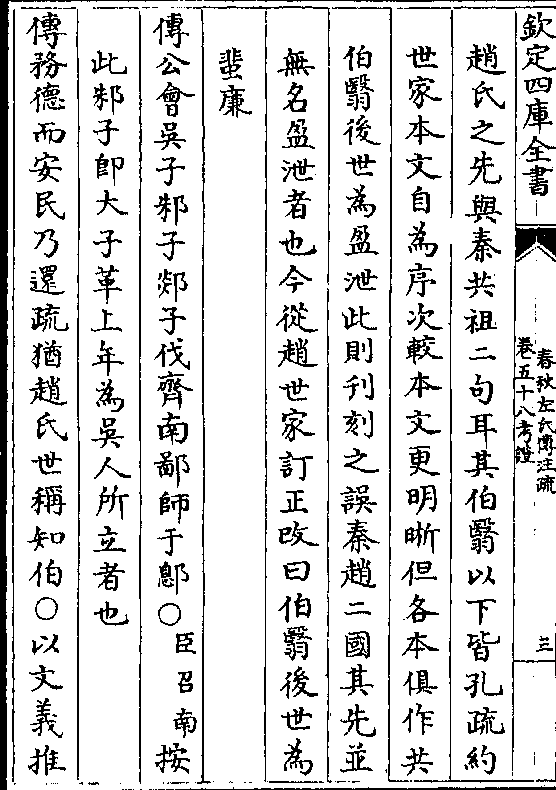 欽定四庫全書
春秋左氏傳注疏
卷五十八考證
三
趙氏之先與秦共祖二句耳其伯翳以下皆孔疏約
世家本文自為序次較本文更明晰但各本俱作共
伯翳後世為盈泄此則刋刻之誤秦趙二國其先並
無名盈泄者也今從趙世家訂正改曰伯翳後世為
蜚廉
傳公會吳子邾子郯子伐齊南鄙師于鄎○臣召南按
此邾子即大子革上年為吳人所立者也
傳務德而安民乃還疏猶趙氏世稱知伯○以文義推